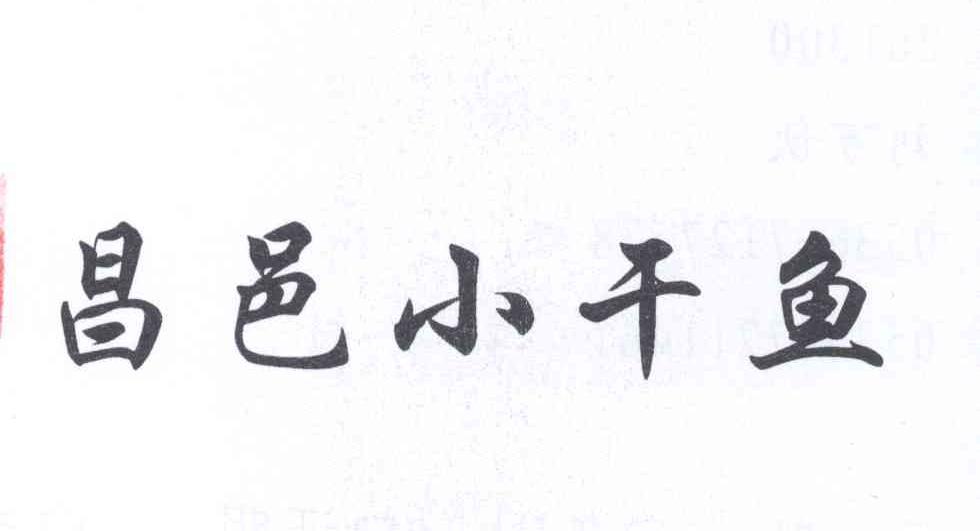 昌邑小干鱼